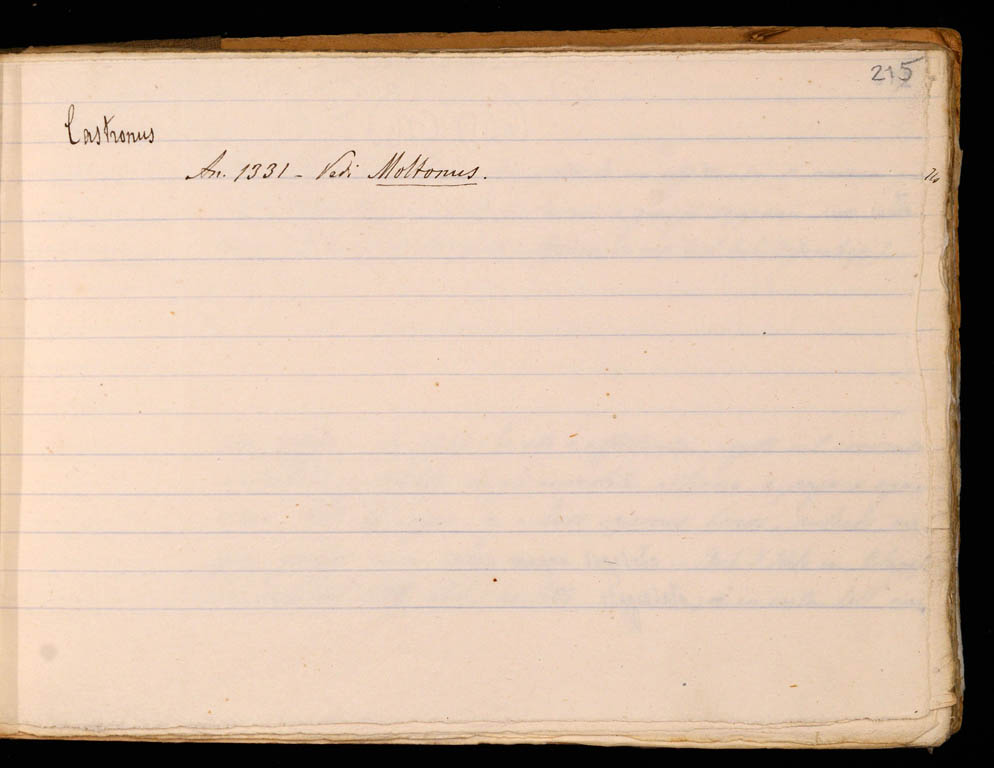 215
Castronus
An. 1331 - Vedi Moltonus.